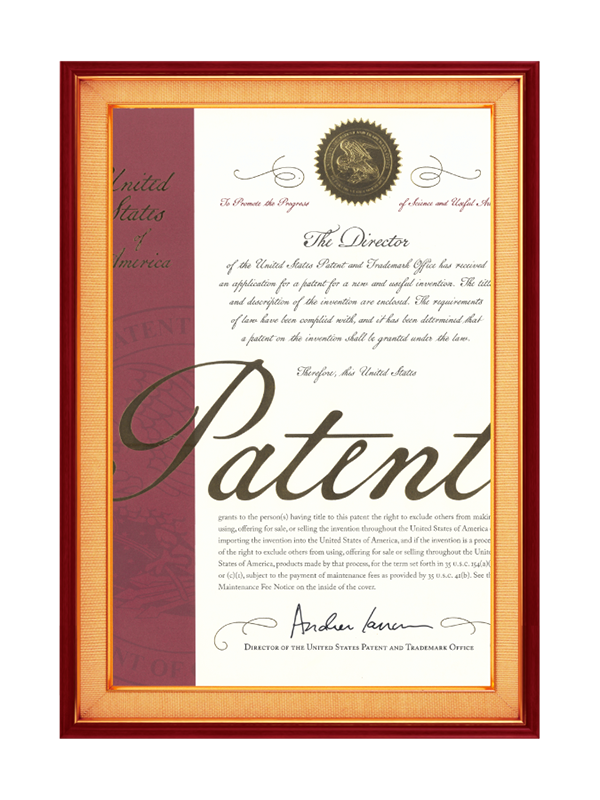 United
States
of
America
To Promote the Progress of Science and Useful Ar
The Director
of the United States Patent and Trademark Office has received
an application for a patent for a new and useful invention. The title
and description of the invention are enclosed. The requirements
of law have been complied with, and it has been determined that
a patent on the invention shall be granted under the law.
Therefore, this United States
Patent
grants to the person(s) having title to this patent the right to exclude others from maki
using, offering for sale, or selling the invention throughout the United States of America
importing the invention into the United States of America, and if the invention is a proce
of the right to exclude others from using, offering for sale or selling throughout the Unit
States of America, products made by that process, for the term set forth in 35 U.S.C. 154(a)(
or (c)(1), subject to the payment of maintenance fees as provided by 35 U.S.C. 41(b). See t
Maintenance Fee Notice on the inside of the cover.
DIRECTOR OF THE UNITED STATES PATENT AND TRADEMARK OFFICE